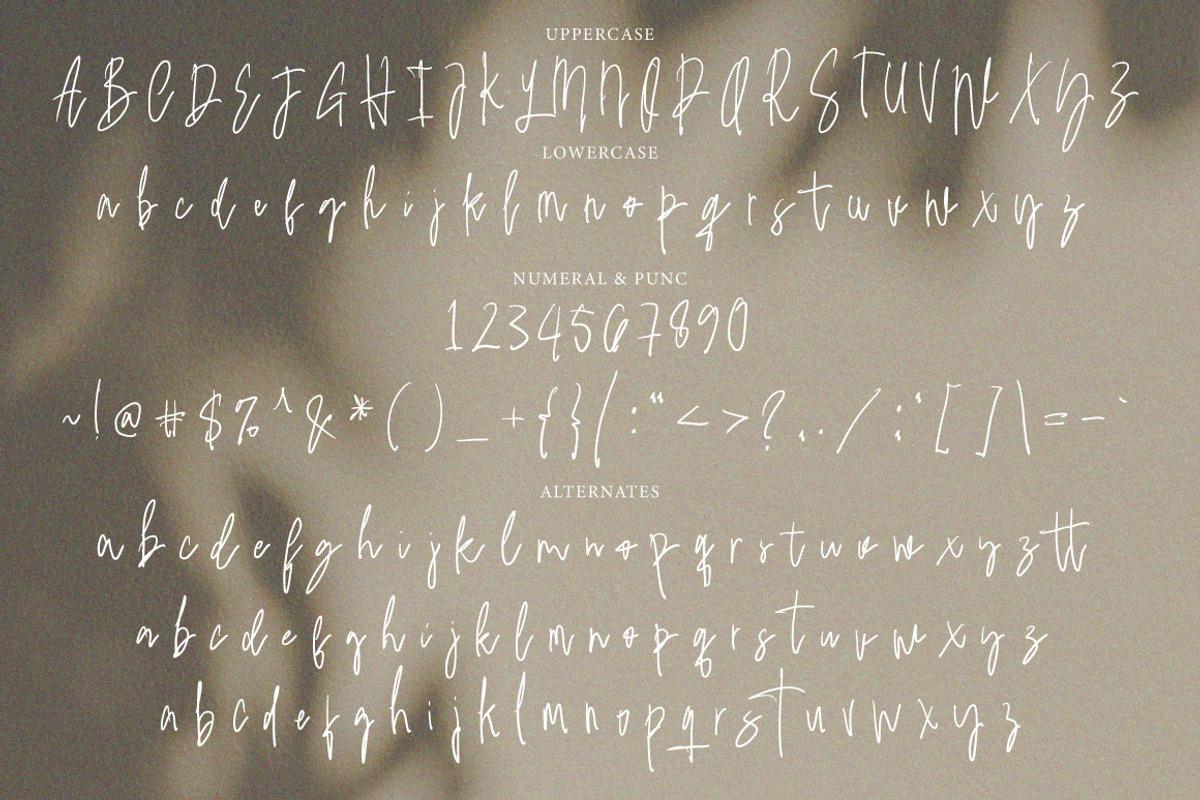 UPPERCASE
A B C D E F G H I J K L M N O P Q R S T U V W X Y Z
LOWERCASE
a b c d e f g h i j k l m n o p q r s t u v w x y z
NUMERAL & PUNC
1 2 3 4 5 6 7 8 9 0
~ ! @ # $ % ^ & * ( ) _ + { } | : “ < > ? , . / ; ‘ [ ] \ = - `
ALTERNATES
a b c d e f g h i j k l m n o p q r s t u v w x y z tt
a b c d e f g h i j k l m n o p q r s t u v w x y z
a b c d e f g h i j k l m n o p q r s t u v w x y z